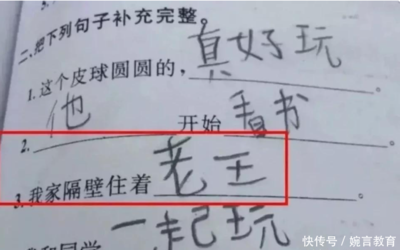 二、把下列句子补充完整。
1.这个皮球圆圆的,真好玩
2.他开始看书。
3.我家隔壁住着老王。
和同学一起玩
快传号/婉言教育